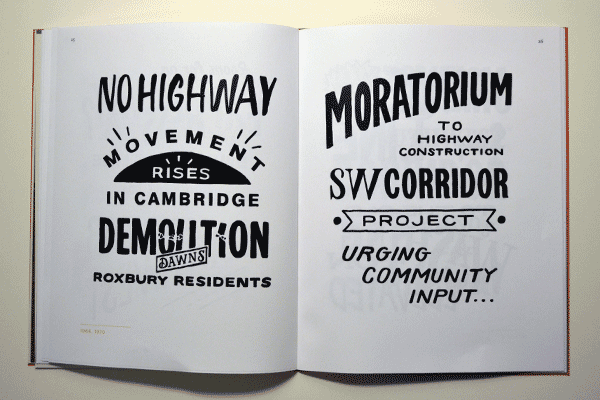 NO HIGHWAY
MOVEMENT
RISES
IN CAMBRIDGE
DEMOLITION
DAWNS
ROXBURY RESIDENTS
MORATORIUM
TO
HIGHWAY
CONSTRUCTION
SW CORRIDOR
PROJECT
URGING
COMMUNITY
INPUT...